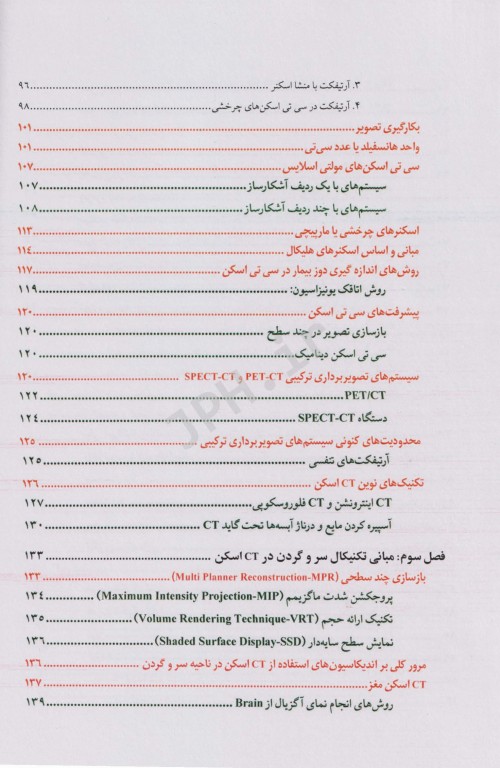 ۳. آرتیفکت با منشا اسکنر ........ ۹۶
۴. آرتیفکت در سی تی اسکن‌های چرخشی ........ ۹۸
بکارگیری تصویر ........ ۱۰۱
واحد هانسفیلد یا عدد سی‌تی ........ ۱۰۱
سی تی اسکن‌های مولتی اسلایس ........ ۱۰۷
سیستم‌های با یک ردیف آشکارساز ........ ۱۰۷
سیستم‌های با چند ردیف آشکارساز ........ ۱۰۸
اسکنرهای چرخشی یا مارپیچی ........ ۱۱۳
مبانی و اساس اسکنرهای هلیکال ........ ۱۱۴
روش‌های اندازه گیری دوز بیمار در سی تی اسکن ........ ۱۱۷
روش اتاقک یونیزاسیون: ........ ۱۱۹
پیشرفت‌های سی تی اسکن ........ ۱۲۰
بازسازی تصویر در چند سطح ........ ۱۲۰
سی تی اسکن دینامیک ........ ۱۲۰
سیستم‌های تصویربرداری ترکیبی PET-CT و SPECT-CT ........ ۱۲۰
PET/CT ........ ۱۲۲
دستگاه SPECT-CT ........ ۱۲۴
محدودیت‌های کنونی سیستم‌های تصویربرداری ترکیبی ........ ۱۲۵
آرتیفکت‌های تنفسی ........ ۱۲۵
تکنیک‌های نوین CT اسکن ........ ۱۲۶
CT اینترونشن و CT فلوروسکوپی ........ ۱۲۷
آسپیره کردن مایع و درناژ آبسه‌ها تحت گاید CT ........ ۱۳۰
فصل سوم: مبانی تکنیکال سر و گردن در CT اسکن ........ ۱۳۳
بازسازی چند سطحی (Multi Planner Reconstruction-MPR) ........ ۱۳۳
پروجکشن شدت ماگزیمم (Maximum Intensity Projection-MIP) ........ ۱۳۴
تکنیک ارائه حجم (Volume Rendering Technique-VRT) ........ ۱۳۵
نمایش سطح سایه‌دار (Shaded Surface Display-SSD) ........ ۱۳۶
مرور کلی بر اندیکاسیون‌های استفاده از CT اسکن در ناحیه سر و گردن ........ ۱۳۶
CT اسکن مغز ........ ۱۳۷
روش‌های انجام نمای آگزیال از Brain ........ ۱۳۹
JPH.ir